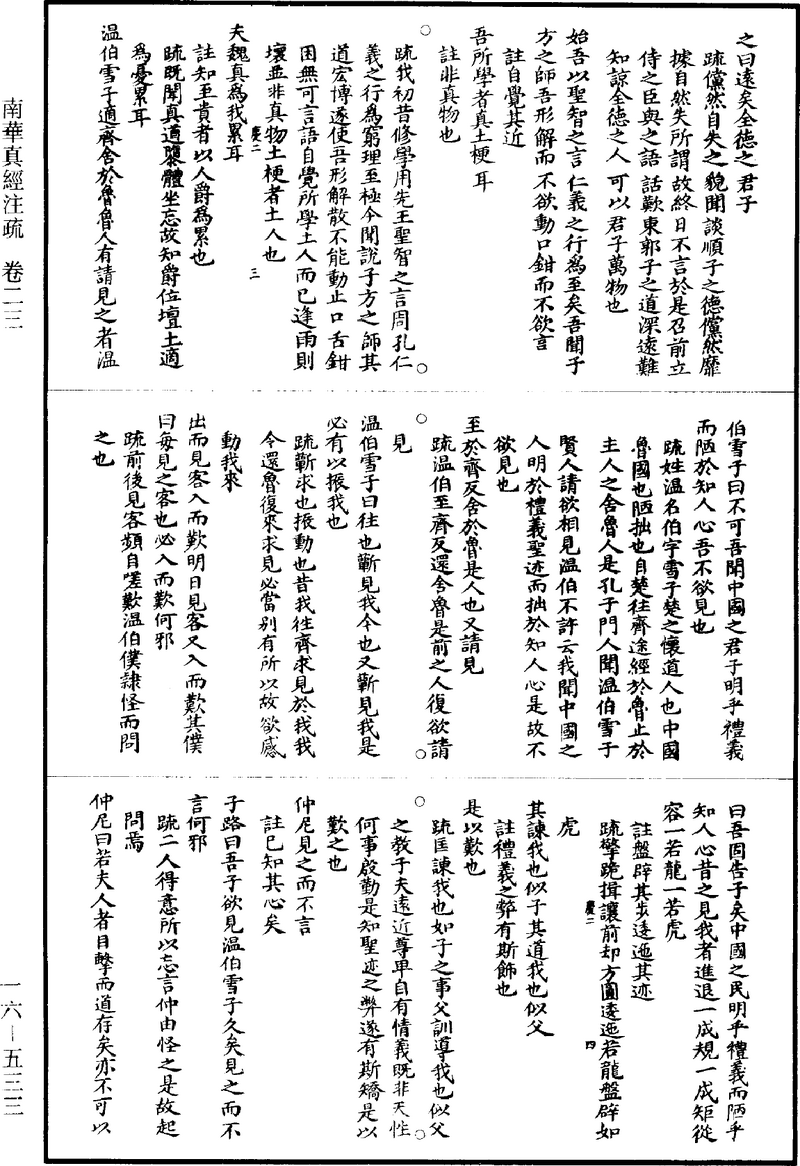 之曰遠矣全德之君子
疏儻然自失之貌聞談順子之德儻然靡
據自然失所謂故終日不言於是召前立
侍之臣與之語話歎東郭子之道深遠難
知諒全德之人可以君子萬物也
始吾以聖智之言仁義之行為至矣吾聞子
方之師吾形解而不欲動口鉗而不欲言
註自覺其近
吾所學者真土梗耳
註非真物也
疏我初昔修學用先王聖智之言周孔仁
義之行為窮理至極今聞說子方之師其
道宏博遂使吾形解散不能動止口舌鉗
困無可言語自覺所學土人而已逢雨則
壞並非真物土梗者土人也
慶二 三
夫魏真為我累耳
註知至貴者以人爵為累也
疏既聞真道隳體坐忘故知爵位壇土適
為憂累耳
温伯雪子適齊舍於魯魯人有請見之者温
伯雪子曰不可吾聞中國之君子明乎禮義
而陋於知人心吾不欲見也
疏姓温名伯字雪子楚之懷道人也中國
魯國也陋拙也自楚往齊途經於魯止於
主人之舍魯人是孔子門人聞温伯雪子
賢人請欲相見温伯不許云我聞中國之
人明於禮義聖迹而拙於知人心是故不
欲見也
至於齊反舍於魯是人也又請見
疏温伯至齊反還舍魯是前之人復欲請
見
温伯雪子曰往也蘄見我今也又蘄見我是
必有以振我也
疏蘄求也振動也昔我往齊求見於我我
今還魯復來求見必當别有所以故欲感
動我來
出而見客入而歎明日見客又入而歎其僕
曰每見之客也必入而歎何邪
疏前後見客頻自嗟歎温伯僕隷怪而問
之也
曰吾固告子矣中國之民明乎禮義而陋乎
知人心昔之見我者進退一成規一成矩從
容一若龍一若虎
註盤辟其步逶迤其迹
疏擎跪揖讓前却方圓逶迤若龍盤辟如
慶二 四
虎
其諫我也似子其道我也似父
註禮義之弊有斯飾也
是以歎也
疏匡諫我也如子之事父訓導我也似父
之教子夫遠近尊卑自有情義既非天性
何事殷勤是知聖迹之弊遂有斯矯是以
歎之也
仲尼見之而不言
註已知其心矣
子路曰吾子欲見温伯雪子久矣見之而不
言何邪
疏二人得意所以忘言仲由怪之是故起
問焉
仲尼曰若夫人者目擊而道存矣亦不可以
南華真經注疏 卷二三
一六－五三三